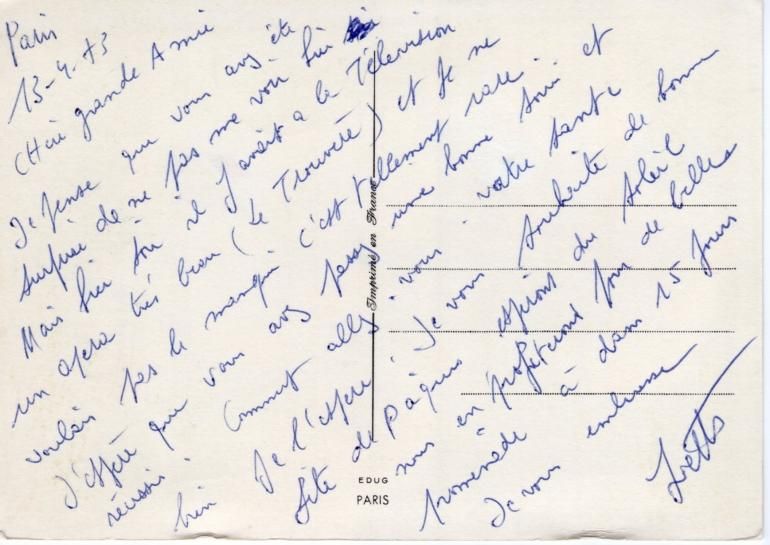 Paris
13-4-73
Chère grande Amie
Je pense que vous avez été
surprise de ne pas me voir hier
Mais hier soir il y avait à la Télévision
un opéra très beau (Le Trouvère) et Je ne
voulais pas le manquer c'est tellement rare.
J'espère que vous avez passé une bonne soirée et
réussie. Comment allez vous. votre santé
bien Je l'espère. Je vous souhaite de bonne
fête de Pâques espérons du soleil
nous en profiterons pour de belles
promenade à dans 15 jours
Je vous embrasse
Imprimé en France
EDUG
PARIS